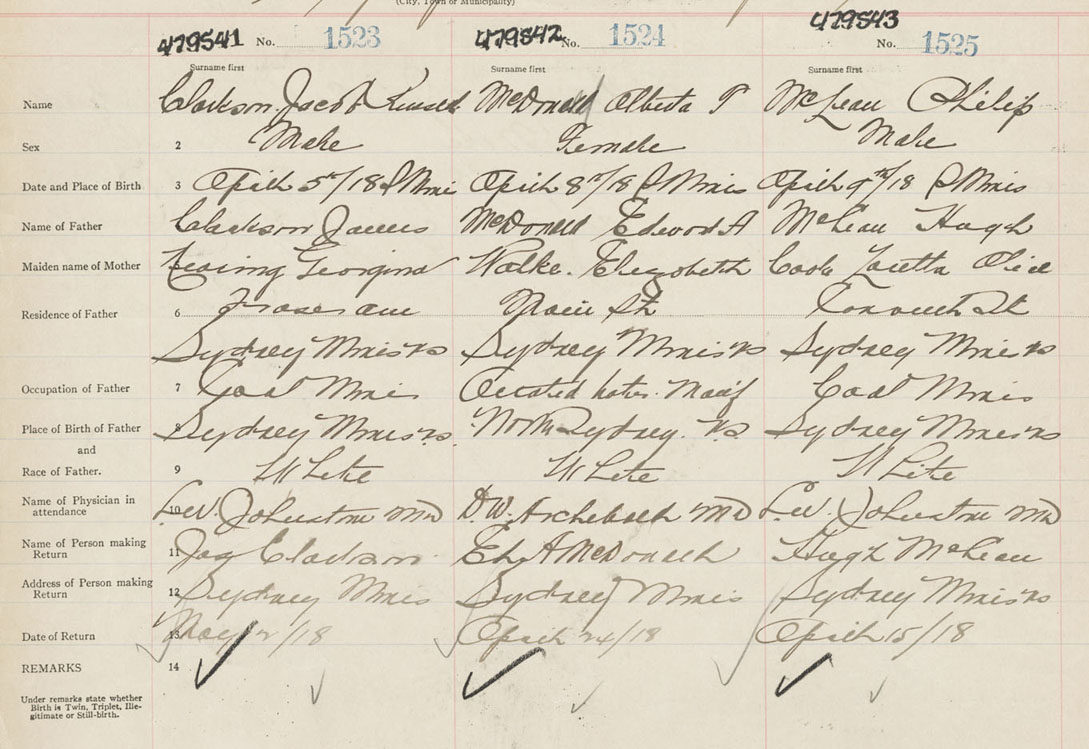 (City, Town or Municipality)
479541 No. 1523 479542 No. 1524 479543 No. 1525
Surname first Surname first Surname first
Name Clarkson Jacob McDonald Alberta McLean Philip
Sex 2 Male Female Male
Date and Place of Birth 3 April 5th/18 S Mines April 8th/18 S Mines April 9th/18 S Mines
Name of Father Clarkson James McDonald Edward A McLean Hugh
Maiden name of Mother Georgina Walke. Elizabeth Cook
Residence of Father 6 Fraser ave Main St St
Sydney Mines NS Sydney Mines NS Sydney Mines NS
Occupation of Father 7 Coal Mine Coal Mine
Place of Birth of Father 8 Sydney Mines NS. North Sydney. NS Sydney Mines NS
and
Race of Father. 9 White White White
Name of Physician in 10 L.W. Johnstone MD D.W. Archibald MD L.W. Johnstone MD
attendance
Name of Person making 11 Jas Clarkson Ed A McDonald Hugh McLean
Return
Address of Person making 12 Sydney Mines Sydney Mines Sydney Mines NS
Return
Date of Return 13 May 2/18 April 24/18 April 15/18
REMARKS 14
Under remarks state whether
Birth is Twin, Triplet, Ille-
gitimate or Still-birth.